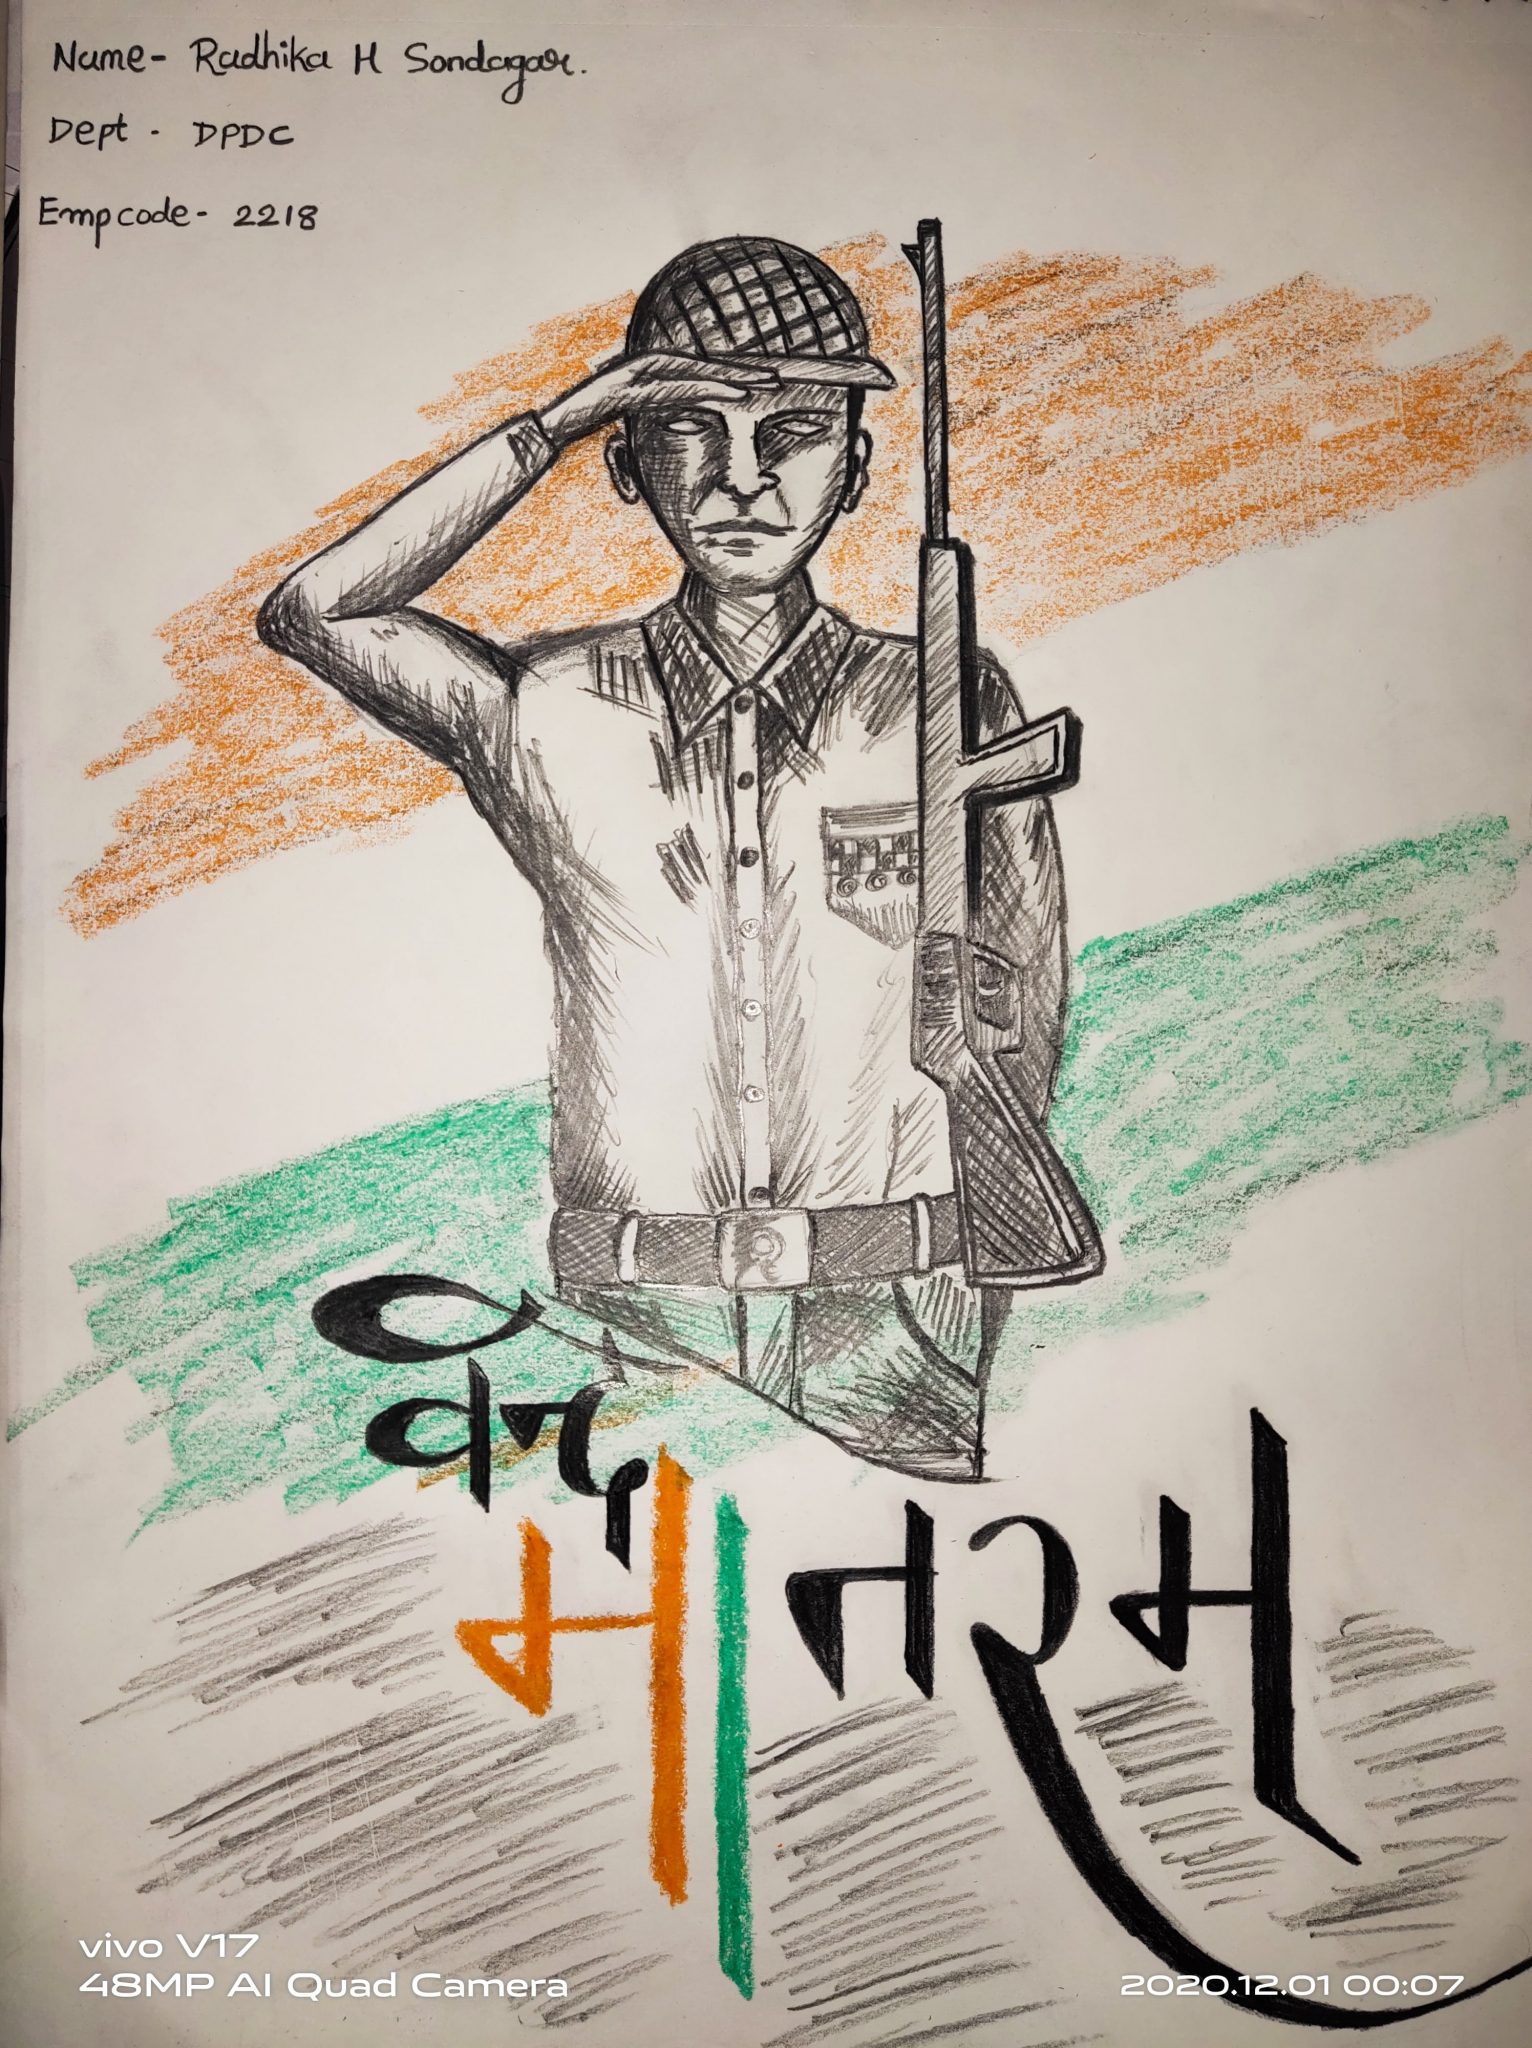 Name- Radhika H Sondagar.
Dept - DPDC
Empcode- 2218
वन्दे
मातरम
vivo V17
48MP AI Quad Camera
2020.12.01 00:07